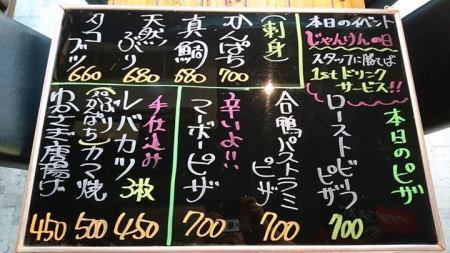 本日のイベント
じゃんけんの日
スタッフに勝てば
1stドリンク
サービス!!
(刺身)
かんぱち 700
真鯛 680
天然ぶり 680
タコブツ 660
本日のピザ
ローストビーフピザ 700
合鴨パストラミピザ 700
辛いよ!!
マーボーピザ 700
手仕込み
レバカツ 3枚 450
カマ焼 500
唐揚げ 450